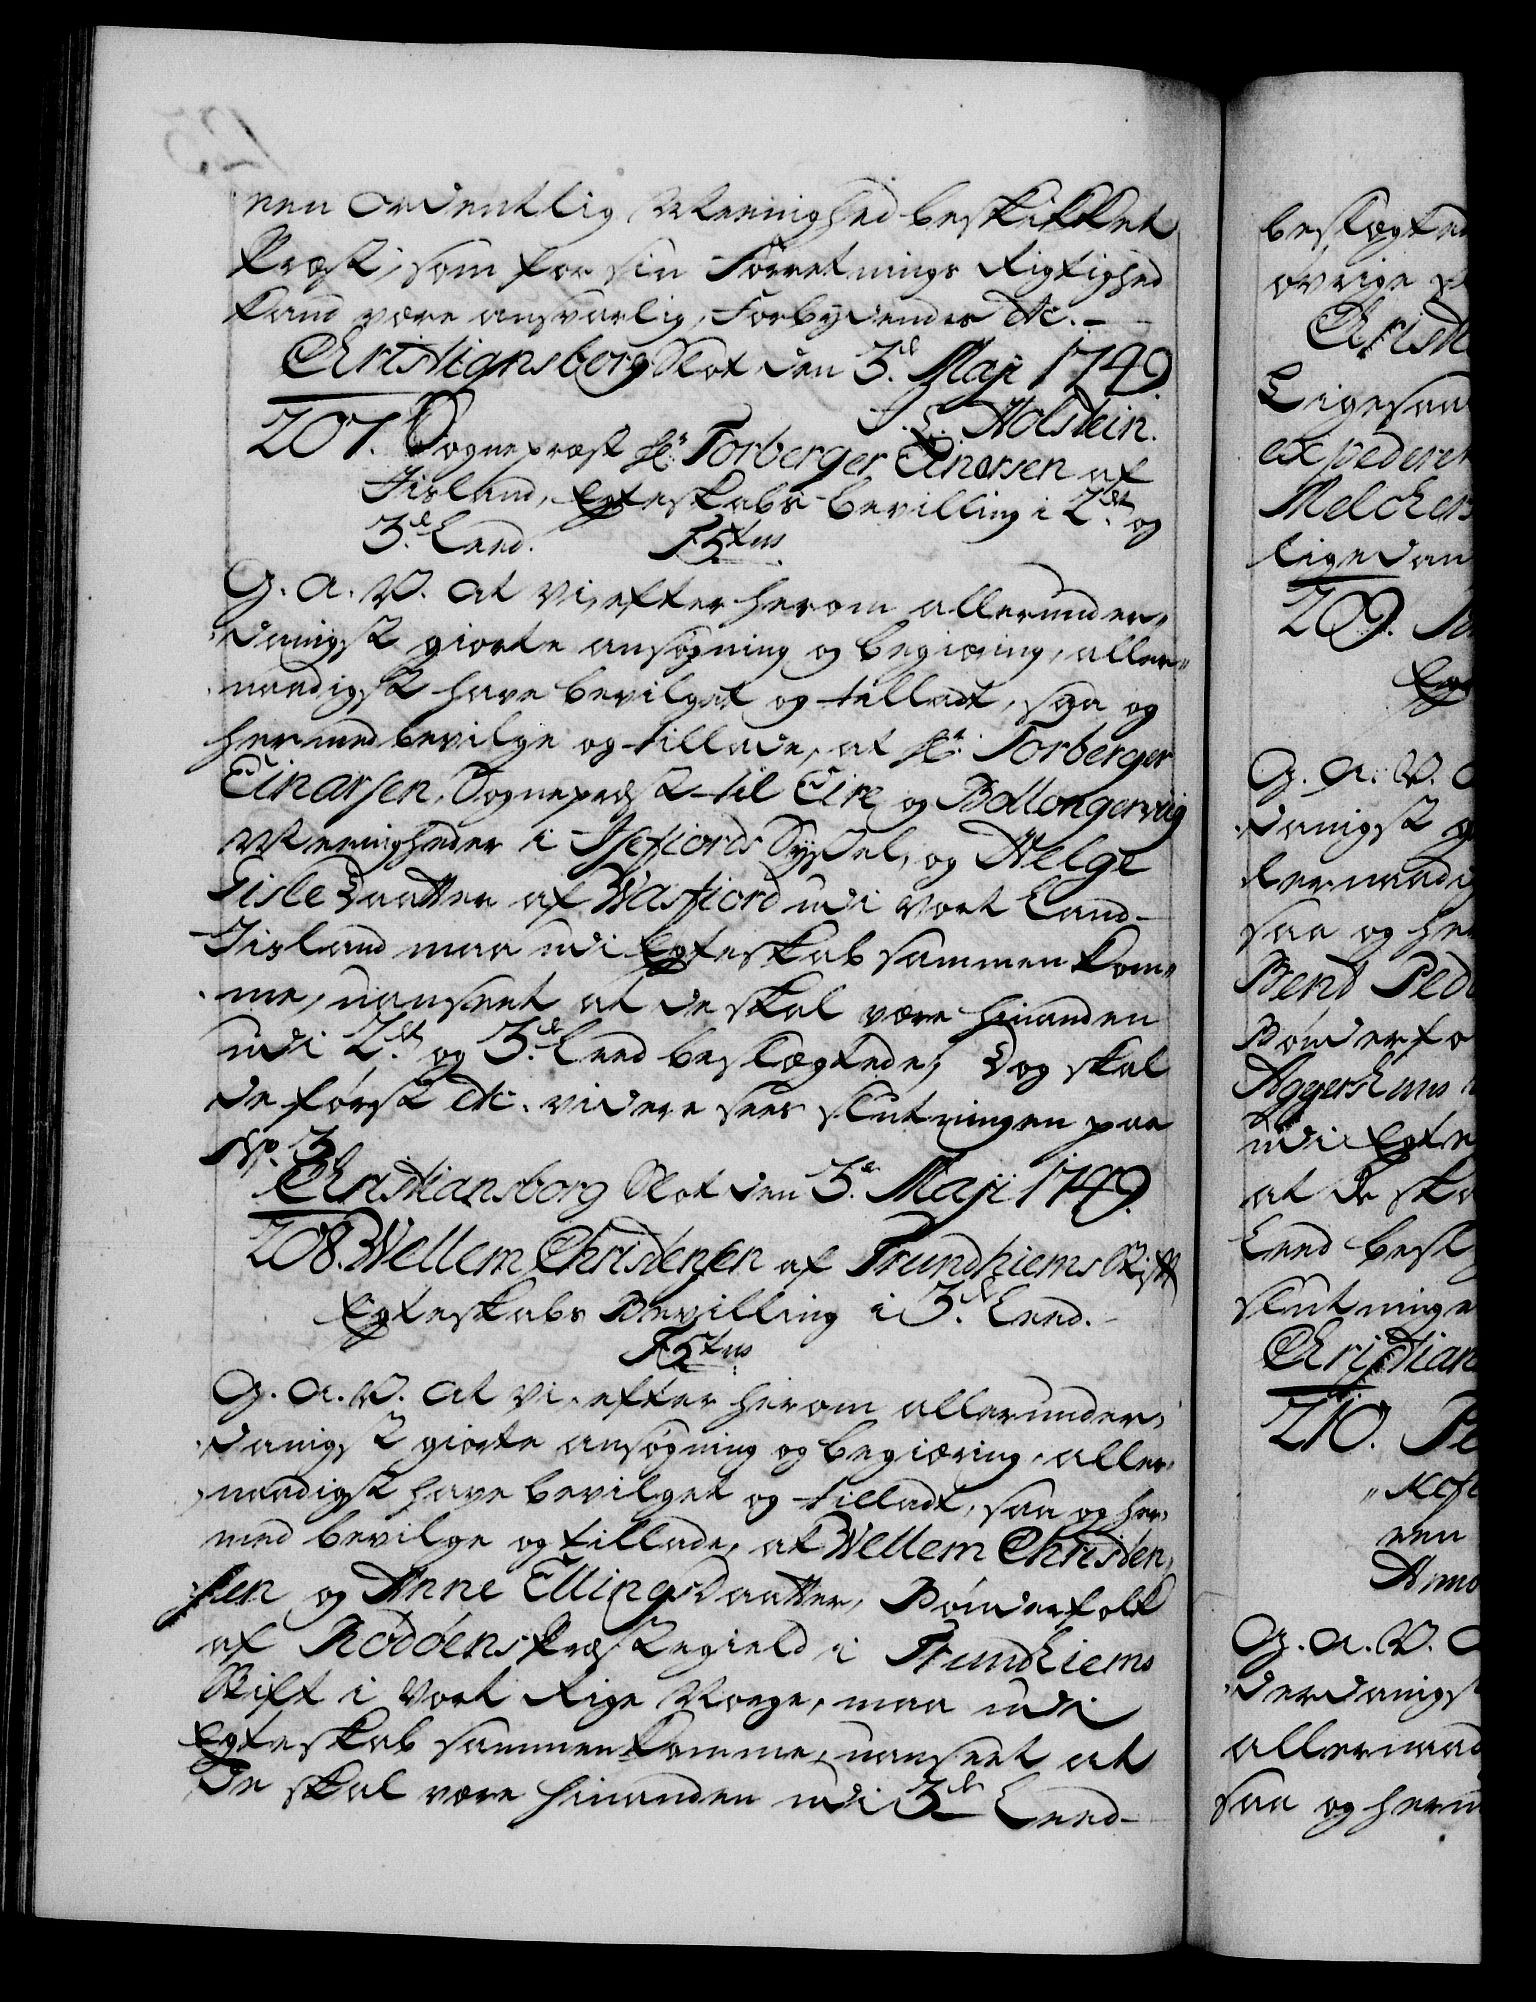 een Ordentlig Meenighed beskikket
Præst, som for sin Forretnings Rigtighed
kand være ansvarlig, Forbydendes etc.
Christiansborg Slot den 3.d Maji 1749.
J. L. Holstein.
207. Sognepræst Hr. Torberger Einersen af
Iisland, Egteskabs-bevilling i 2.det og
3.d Leed.
G. A. V. At Vi, efter herom allerunder-
danigst giorte ansøgning og begiæring, aller-
naadigst have bevilget og tilladt, saa og
hermed bevilge og tillade, at Hr. Torberger
Einarsen, Sognepræst til Eire og Bollongervig
Meenigheder i Isefiords Syssel, og Helge
Gisle Daatter af Wasfiord udi Vort Land
Iisland maa udi Egteskab sammen kom-
me, uanseet at de skal være hinanden
udi 2.det og 3.d Leed beslægtede; Dog skal
de først etc. videre sees slutningen paa
No. 3.
Christiansborg Slot den 3.d Maji 1749.
208. Wellem Christensen af Trundhiems Stift
Egteskabs Bevilling i 3.d Leed.
G. A. V. At Vi, efter herom allerunder-
danigst giorte ansøgning og begiæring, aller-
naadigst have bevilget og tilladt, saa og her-
med bevilge og tillade, at Wellem Christen-
sen og Anne Ellings Daatter, Bønderfolk
af Røddens Præstegield i Trundhiems
Stift i Vort Rige Norge, maa udi
Egteskab sammenkomme, uanseet at
De skal være hinanden udi 3.d Leed
beslægted
øvrige
Ligesaa
expedere
Melchers
ligedan
209.
G. A. V.
danigst
lernaadig
saa og her
Bend Ped
Bønderfo
Aggershuus
udi Egte
at de ska
Leed besl
slutninge
Christian
210. Pe
een
Anne
G. A. V.
derdanigst
allernaad
saa og herm